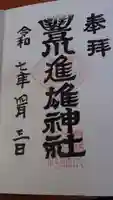 奉拝
豊川進雄神社
令和七年四月三日